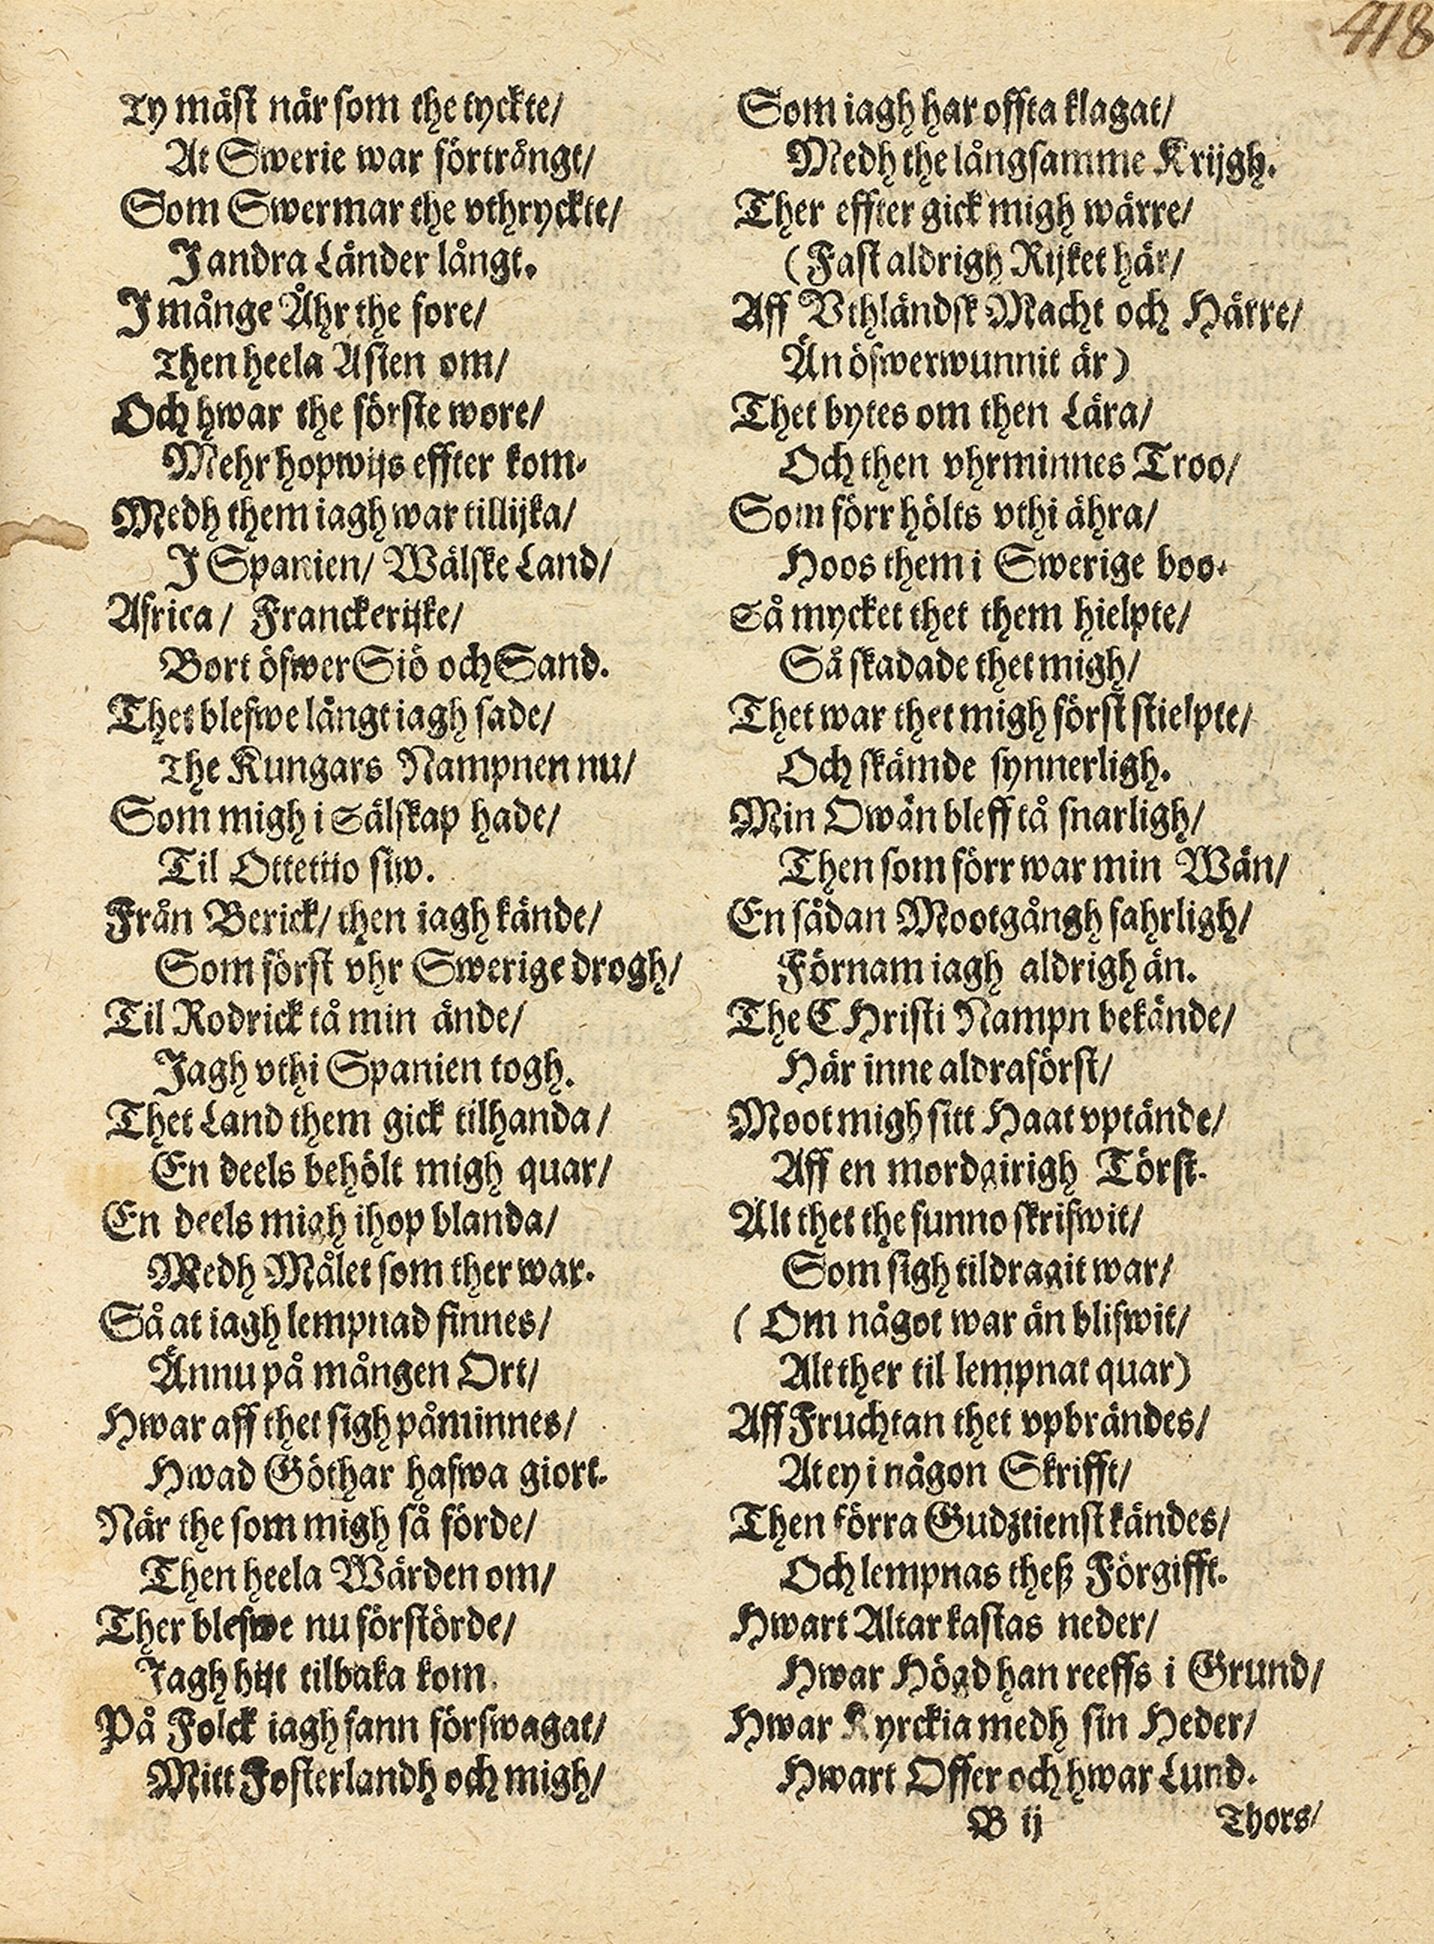 418
Ty mäst när som the tyckte/
At Swerie war förtrångt/
Som Swermar the vthryckte/
I andra Länder långt.
I månge Åhr the fore/
Then heela Asien om/
Och hwar the förste wore/
Mehr hopwijs effter kom.
Medh them iagh war tillijka/
I Spanien/ Wälske Land/
Africa/ Franckerijke/
Bort öfwer Siö och Sand.
Thet blefwe långt iagh sade/
The Kungars Nampnen nu/
Som migh i Sälskap hade/
Til Ottetijo siw.
Från Berick/ then iagh kände/
Som först vhr Swerige drogh/
Til Rodrick tå min ände/
Jagh vthi Spanien togh.
Thet Land them gick tilhanda/
En deels behölt migh quar/
En deels migh ihop blanda/
Medh Målet som ther war.
Så at iagh lempnad finnes/
Ännu på mången Ort/
Hwar aff thet sigh påminnes/
Hwad Göthar hafwa giort.
När the som migh så förde/
Then heela Wärden om/
Ther blefwe nu förstörde/
Jagh hijt tilbaka kom.
På Folck iagh fann förswagat/
Mitt Fosterlandh och migh/
Som iagh har offta klagat/
Medh the långsamme Krijgh.
Ther effter gick migh wärre/
(Fast aldrigh Rijket här/
Aff Vthländsk Macht och Härre/
Än öfwerwunnit är)
Thet bytes om then Lära/
Och then vhrminnes Troo/
Som förr hölts vthi ähra/
Hoos them i Swerige boo.
Så mycket thet them hielpte/
Så skadade thet migh/
Thet war thet migh först stielpte/
Och skämde synnerligh.
Min Owän bleff tå snarligh/
Then som förr war min Wän/
En sådan Mootgångh fahrligh/
Förnam iagh aldrigh än.
The CHristi Nampn bekände/
Här inne aldraförst/
Moot migh sitt Haat vptände/
Aff en mordgirigh Törst.
Alt thet the funno skrifwit/
Som sigh tildragit war/
(Om något war än blifwit/
Alt ther til lempnat quar)
Aff Fruchtan thet vpbrändes/
At ey i någon Skrifft/
Then förra Gudztienst kändes/
Och lempnas theß Förgifft.
Hwart Altar kastas neder/
Hwar Högd han reeffs i Grund/
Hwar Kyrckia medh sin Heder/
Hwart Offer och hwar Lund.
B ij
Thors/